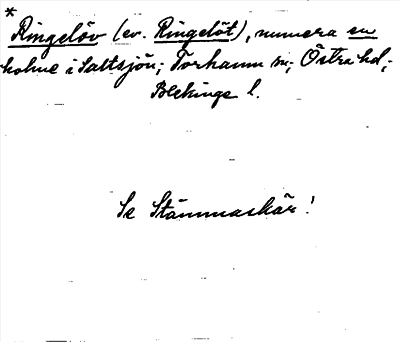 *
Ringelöv (ev. Ringelöt), numera en
holme i Saltsjön; Torhamn sn; Östra hd;
Blekinge l.
Se Stämmaskär!